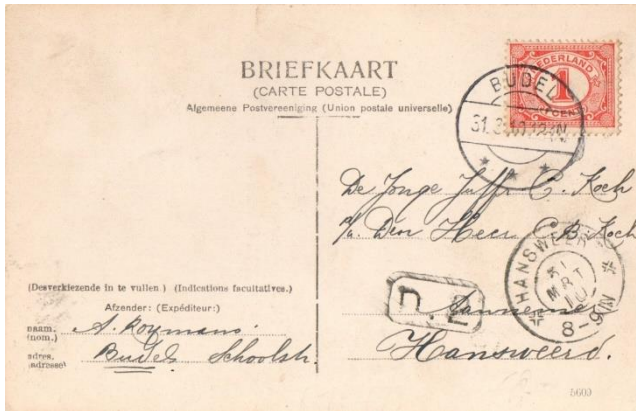 BRIEFKAART
(CARTE POSTALE)
Algemeene Postvereeniging (Union postale universelle)
NEDERLAND
1
CENT
BUDEL
31.3.10.12-1N
De Jonge Juffr C. Koch
p/a. Den Heer C. B. Koch
Aannemer
Hansweerd.
HANSWEERT
31
MRT
10
8-9N
D.E
(Desverkiezende in te vullen) (Indications facultatives.)
Afzender: (Expéditeur:)
naam. A. Roymans
(nom.)
adres. Budel Schoolstr.
(adresse)
5609